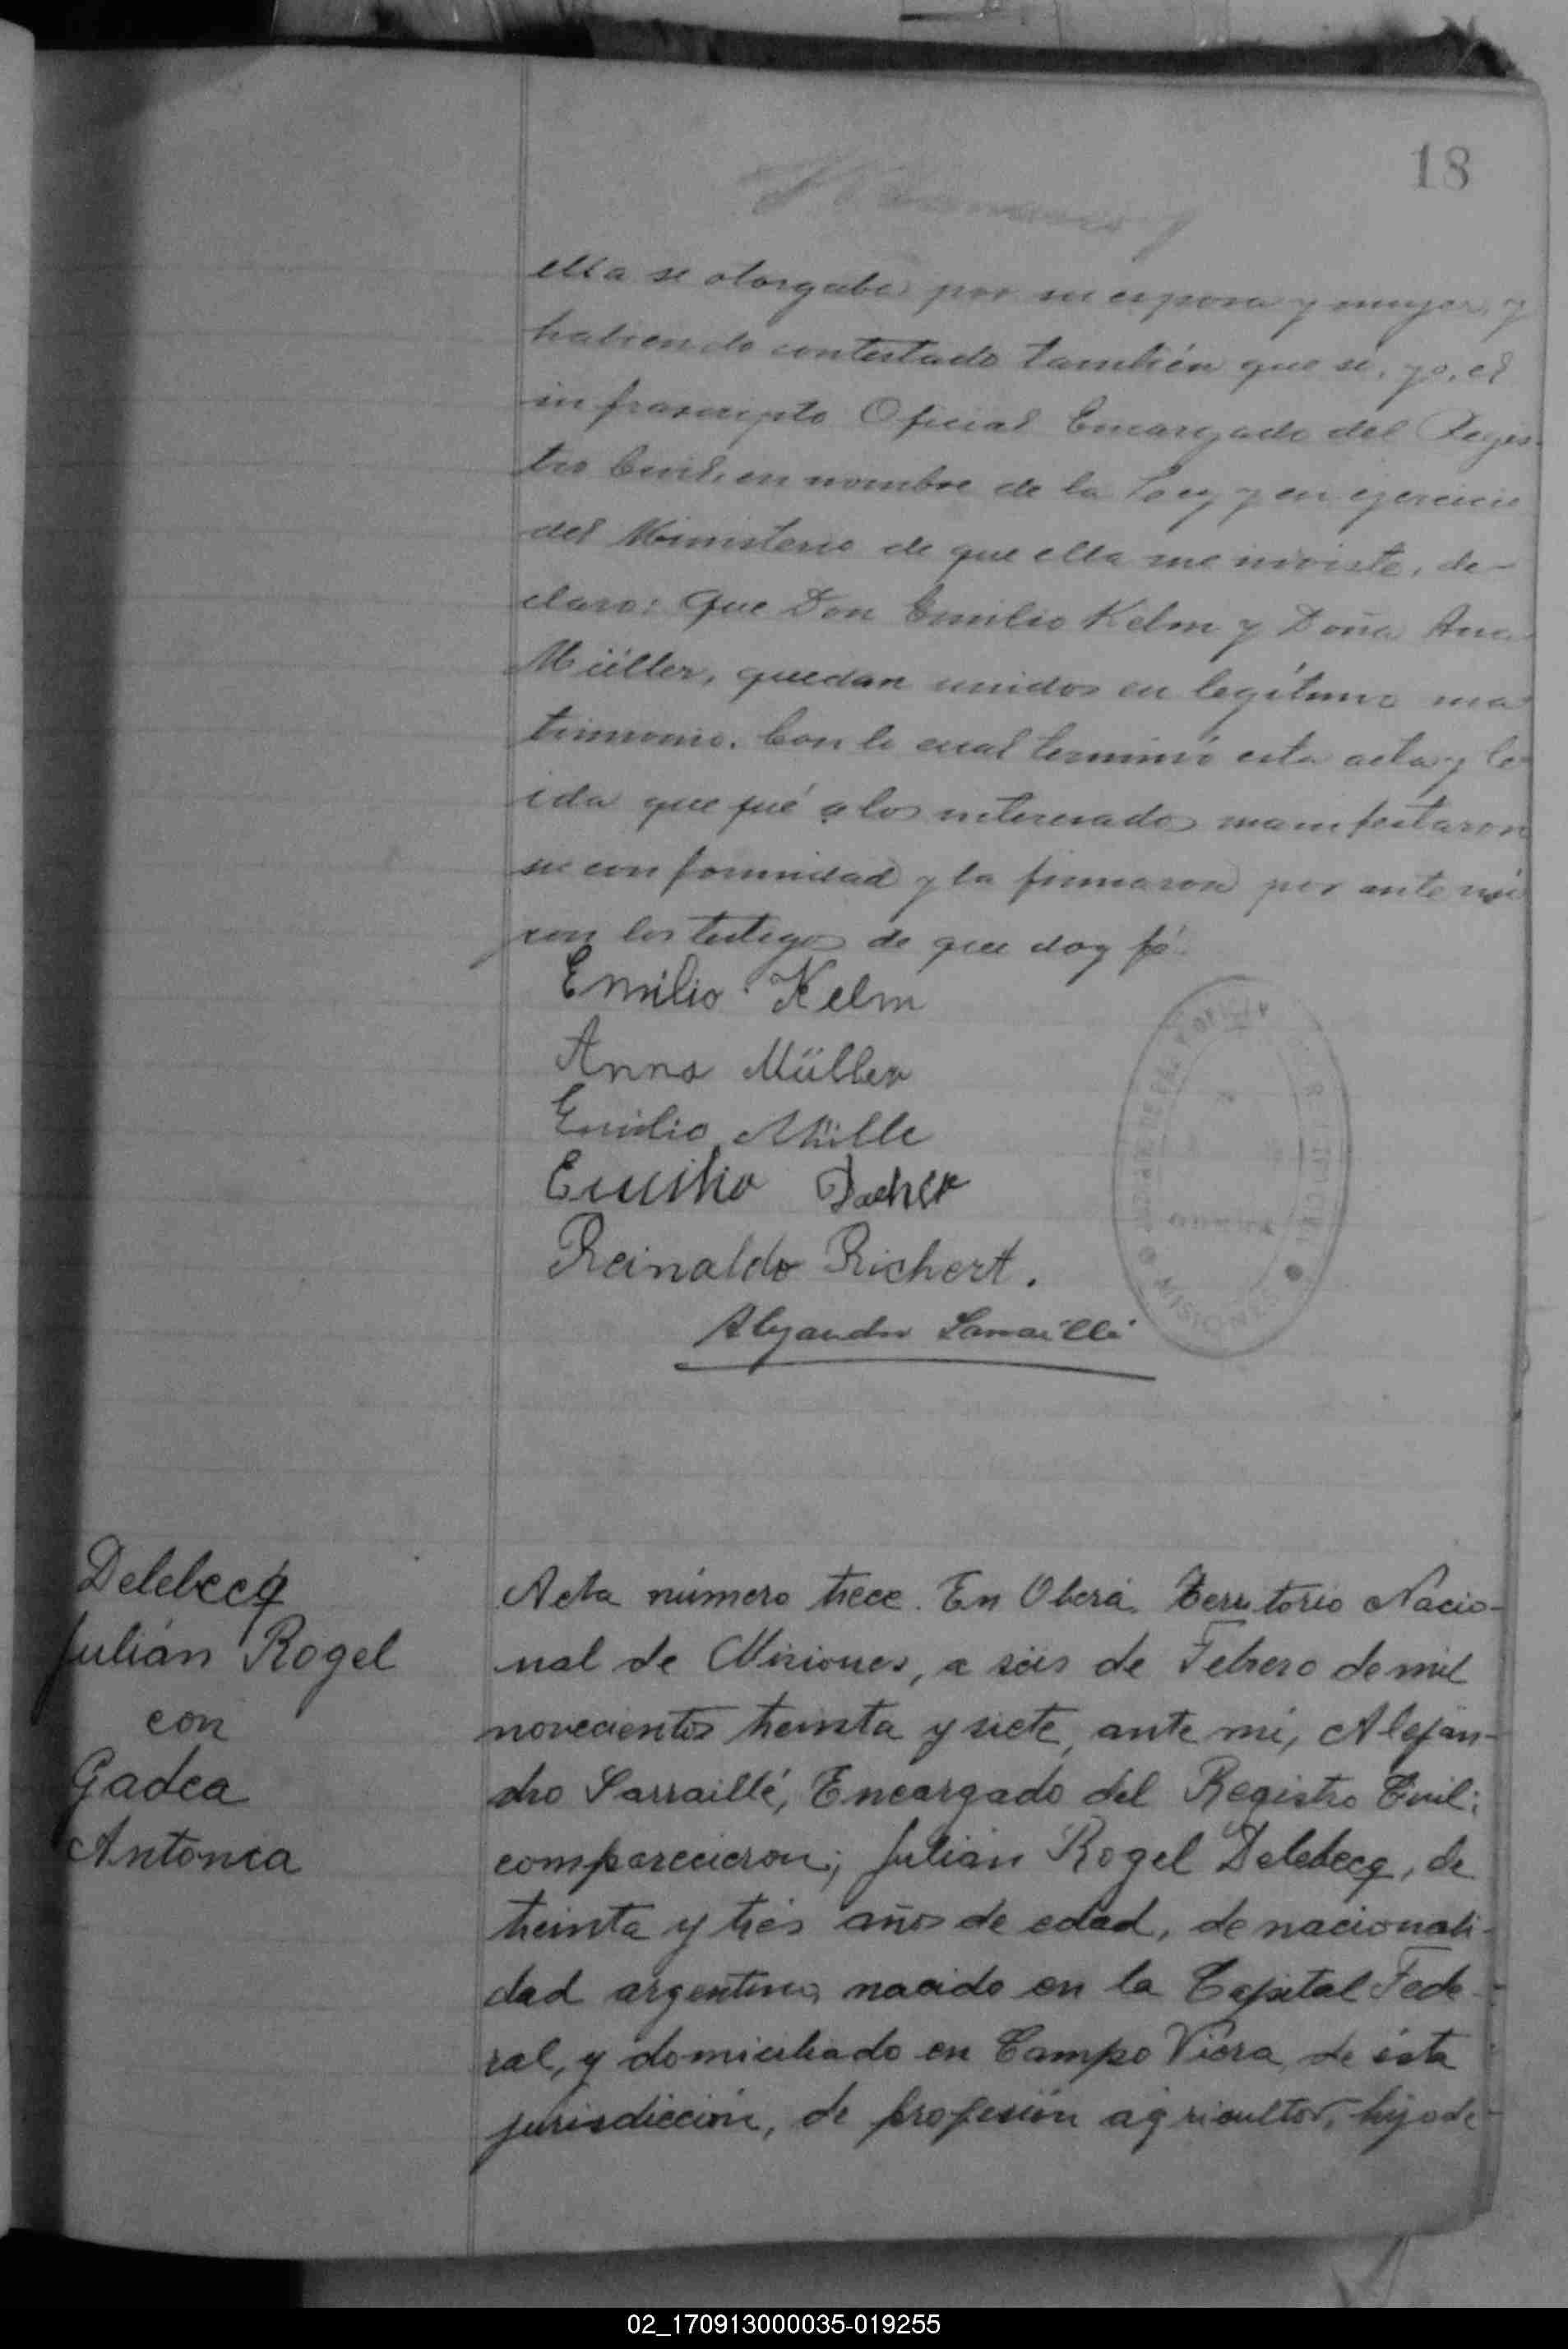 18
ella se otorgaba por su esposa y mujer, y
habiendo contestado también que si, yo, el
infrascripto Oficial Encargado del Regis-
tro Civil, en nombre de la Ley y en ejercicio
del Ministerio de que ella me inviste, de-
claro: Que Don Emilio Kelm y Doña Ana
Müller, quedan unidos en legítimo ma
trimonio. Con lo cual terminó esta acta y le
ida que fué a los interesados manifestaron
su conformidad y la firmaron por ante mi
con los testigos de que doy fé.
Emilio Kelm
Anna Müller
Emilio Mülle
Emilio
Reinaldo Richert.
Alejandro Sarraillé
MISIONES
Delebecq
Julián Rogel
con
Gadea
Antonia
Acta número trece. En Oberá, Territorio Nacio-
nal de Misiones, a seis de Febrero de mil
novecientos treinta y siete, ante mi, Alejan-
dro Sarraillé, Encargado del Registro Civil;
comparecieron; Julián Rogel Delebecq, de
treinta y trés años de edad, de nacionali-
dad argentino, nacido en la Capital Fede-
ral, y domiciliado en Campo Viera, de ésta
jurisdicción, de profesión agricultor, hijo de
02_170913000035-019255